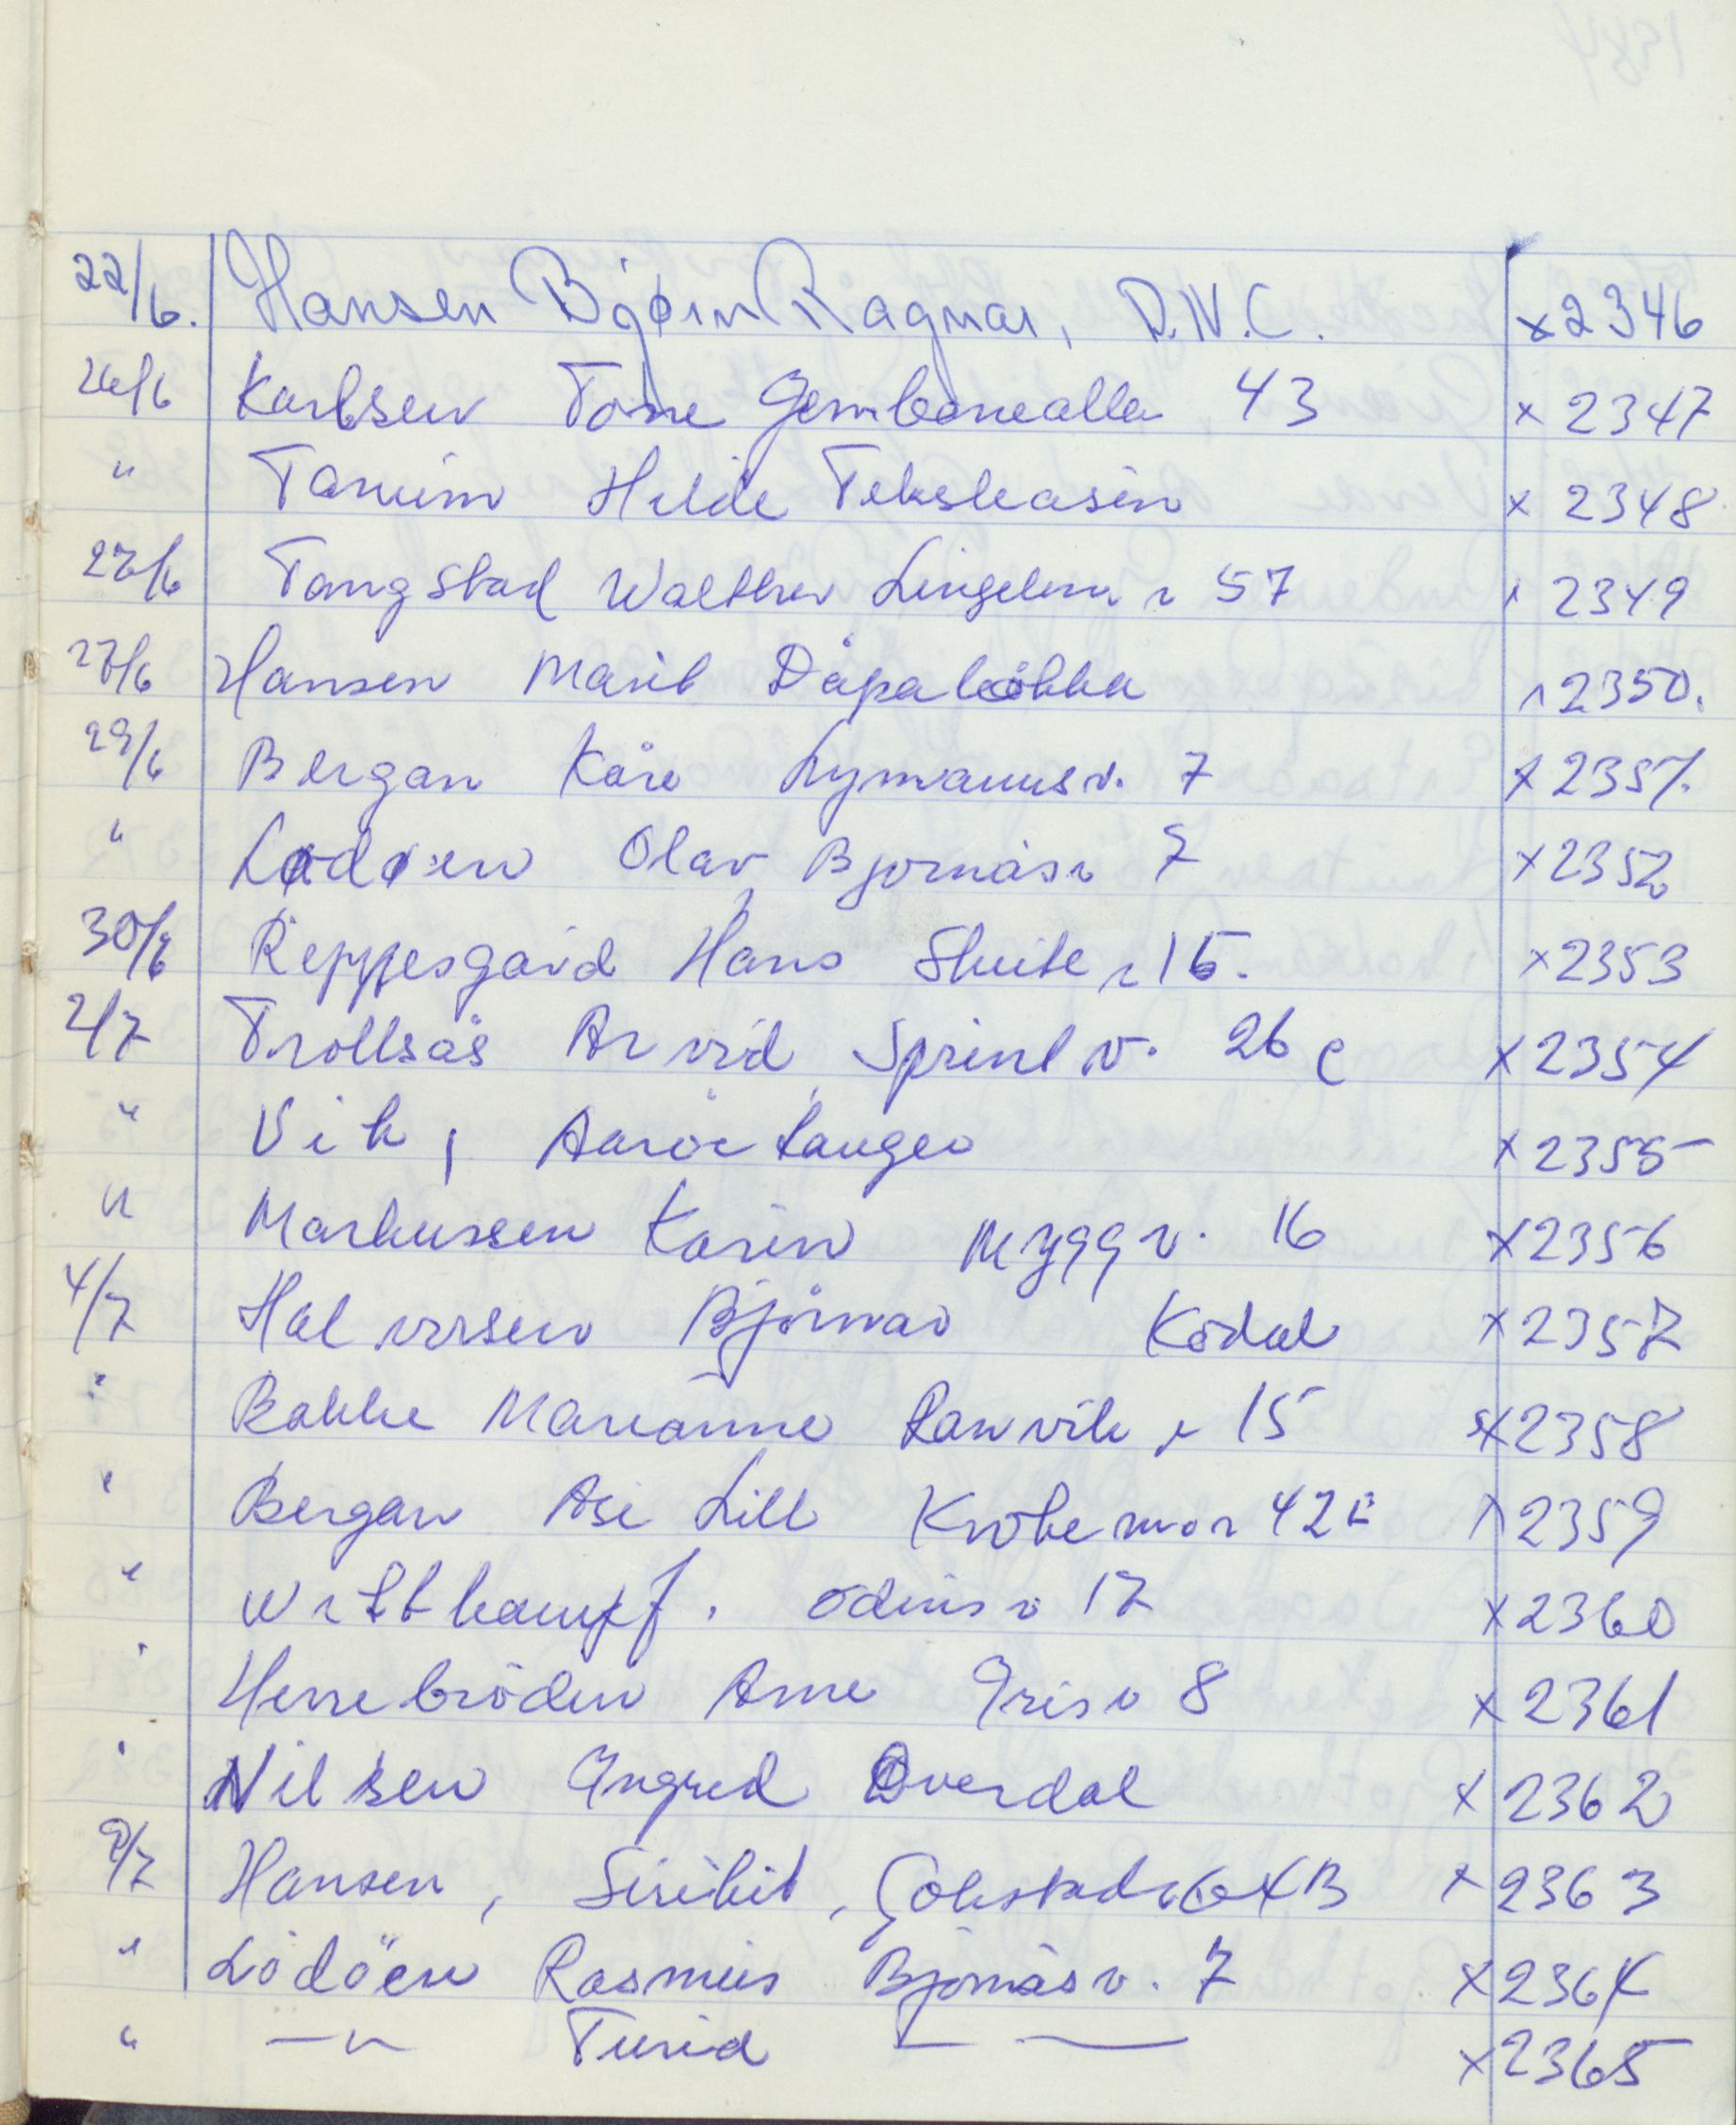 22/6. Hansen Bjørn Ragnar, D.N.C. x2346
26/6 Karlsen Tone Jernbanealle 43 x 2347
" Tanum Hilde x 2348
27/6 Tangstad Walther Lingelem v 57 x 2349
27/6 Hansen Marit Dåpaløkka x 2350.
29/6 Bergan Kåre Lymannsv. 7 x 2351.
" Lødøen Olav Bjørnåsv 7 x2352
30/6 Reppesgård Hans v 15. x2353
2/7 Trollsås Arvid Sprint v. 26 c x2354
" Vik, x2355
" Markussen Karin Myggv. 16 x2356
4/7 Halvorsen Bjørnar Kodal x2357
" Bakke Marianne Ranvik v 15 x2358
" Bergan Åse Lill Krokemov 42 x2359
" Odins v 17 x2360
" Herrebrøden Arne Iris v 8 x2361
" Nilsen Ingrid Overdal x2362
9/7 Hansen, , Gokstadv 64B x2363
" Lødøen Rasmus Bjørnåsv. 7 x2364
" —"— Turid — — x2365